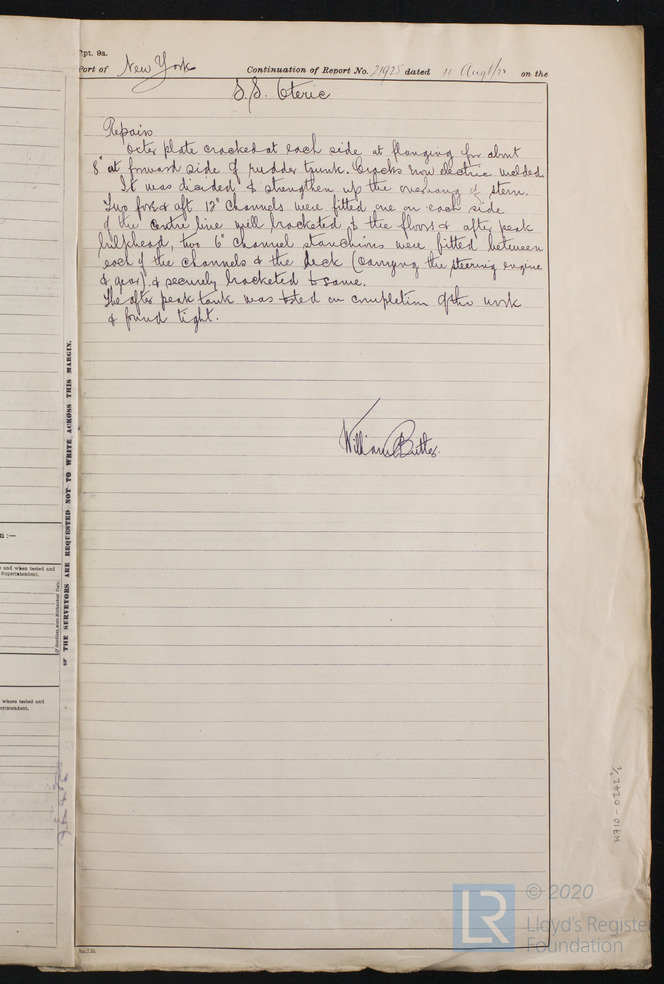 Rpt. 9a.
Port of New York Continuation of Report No. 21925 dated 11 Augt/22 on the
S.S. Oteric
Repairs
Octer plate cracked at each side at flanging for about
8" at forward side of rudder trunk. Cracks now electric welded.
It was decided to strengthen up the overhang of stern.
Two fore & aft 12" channels were fitted one on each side
of the centre line well bracketed to the floors & after peak
bulkhead, two 6" channel stanchions were fitted between
each of the channels & the deck (carrying the steering engine
& gear) & securely bracketed to same.
The after peak tank was tested on completion of the work
& found tight.
William Butler.
THE SURVEYORS ARE REQUESTED NOT TO WRITE ACROSS THIS MARGIN.
n :—
and when tested and
Superintendent.
where tested and
erintendent.
W710-0242 1/2
LR
© 2020
Lloyd's Register
Foundation